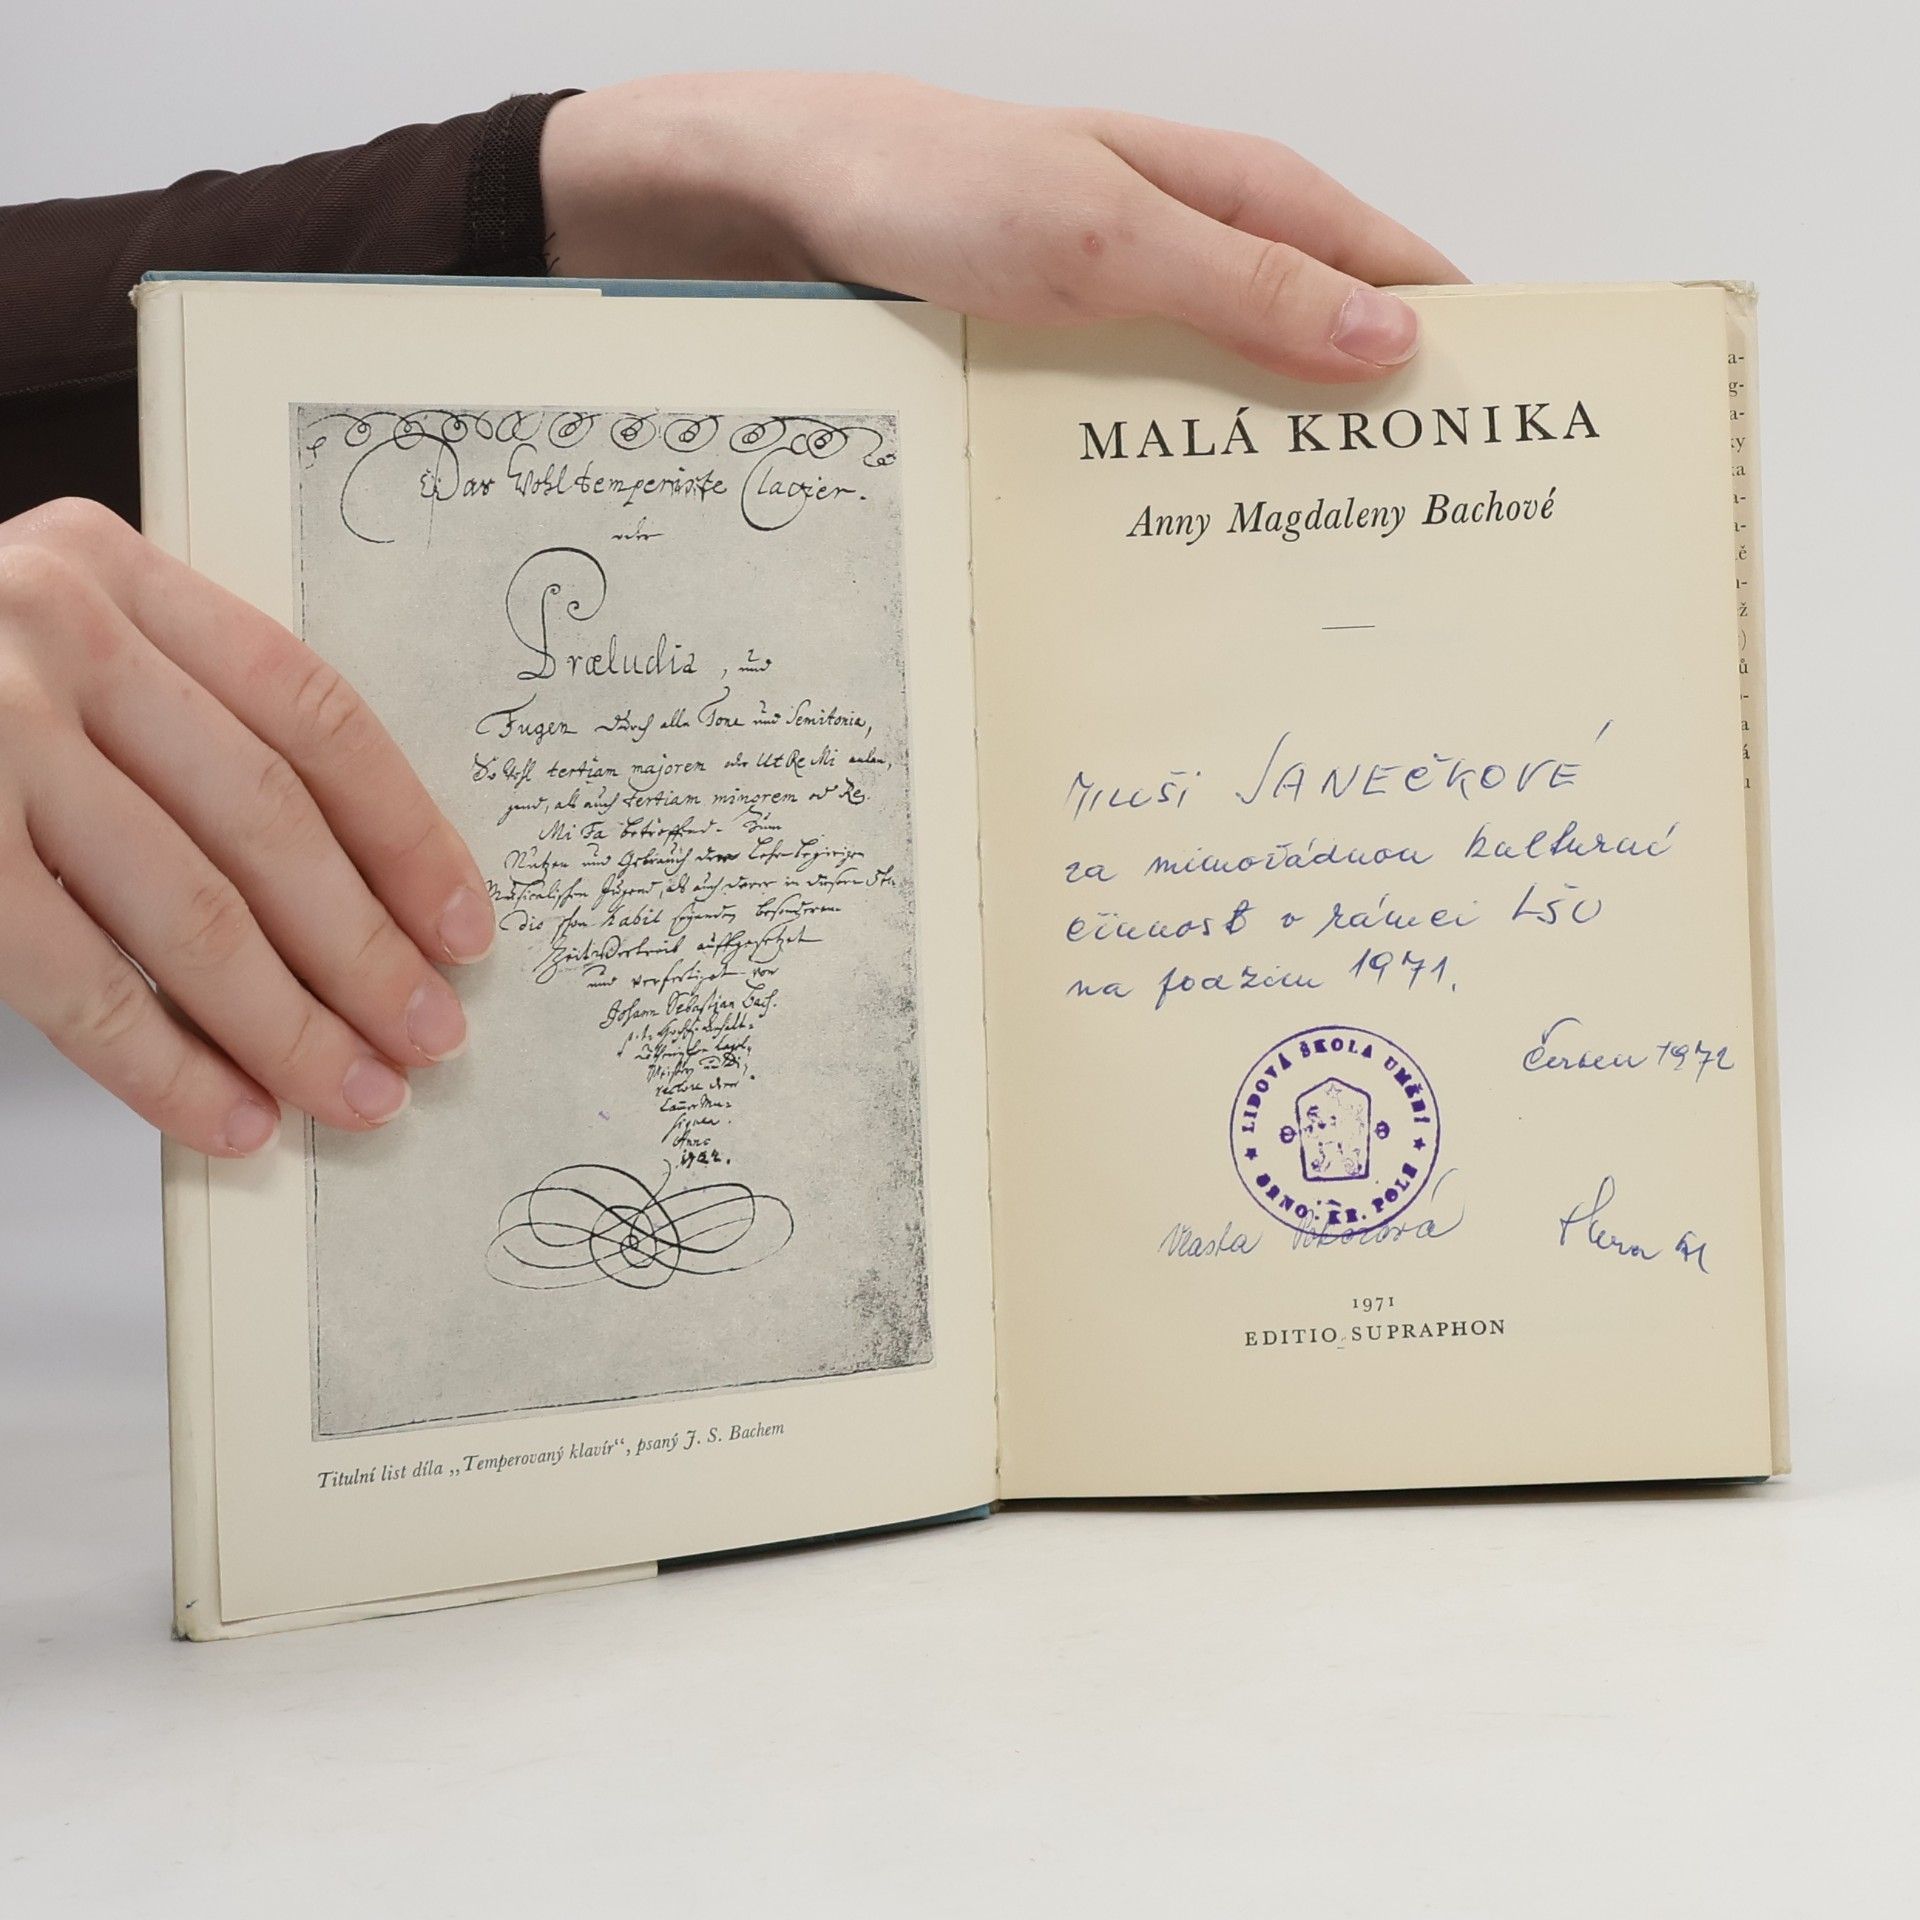 Das Wohltemperirte Clavier.
oder
Præludia, und
Fugen durch alle Tone und Semitonia,
So wohl tertiam majorem oder Ut Re Mi anlan,
gend, als auch tertiam minorem od Re,
Mi Fa betreffend. Zum
Nutzen und Gebrauch der Lehr-begierigen
Musicalischen Jugend, als auch derer in diesem Stu,
dio schon habil seyenden besonderem
Zeitvertreib auffgesetzet
und verfertiget von
Johann Sebastian Bach.
Anno
1722.
Titulní list díla „Temperovaný klavír“, psaný J. S. Bachem
MALÁ KRONIKA
Anny Magdaleny Bachové
Miluši JANEČKOVÉ
za mimořádnou kulturní
činnost v rámci LŠU
na podzim 1971.
Červen 1972
LIDOVÁ ŠKOLA UMĚNÍ
BRNO - KR. POLE
Vlasta Pokorová
1971
EDITIO SUPRAPHON
a-
g-
a-
ky
ka
a-
a-
ě
ž
)
ů
a
á
u